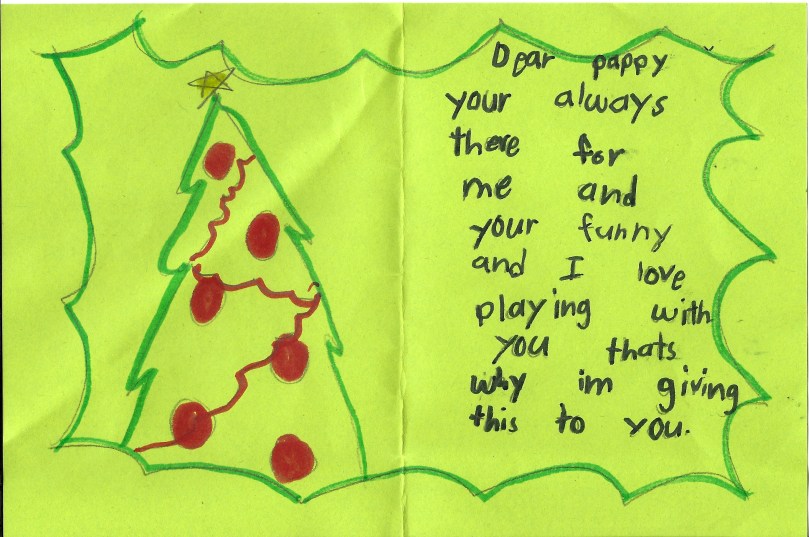 Dear pappy
your always
there for
me and
your funny
and I love
playing with
you thats
why im giving
this to you.